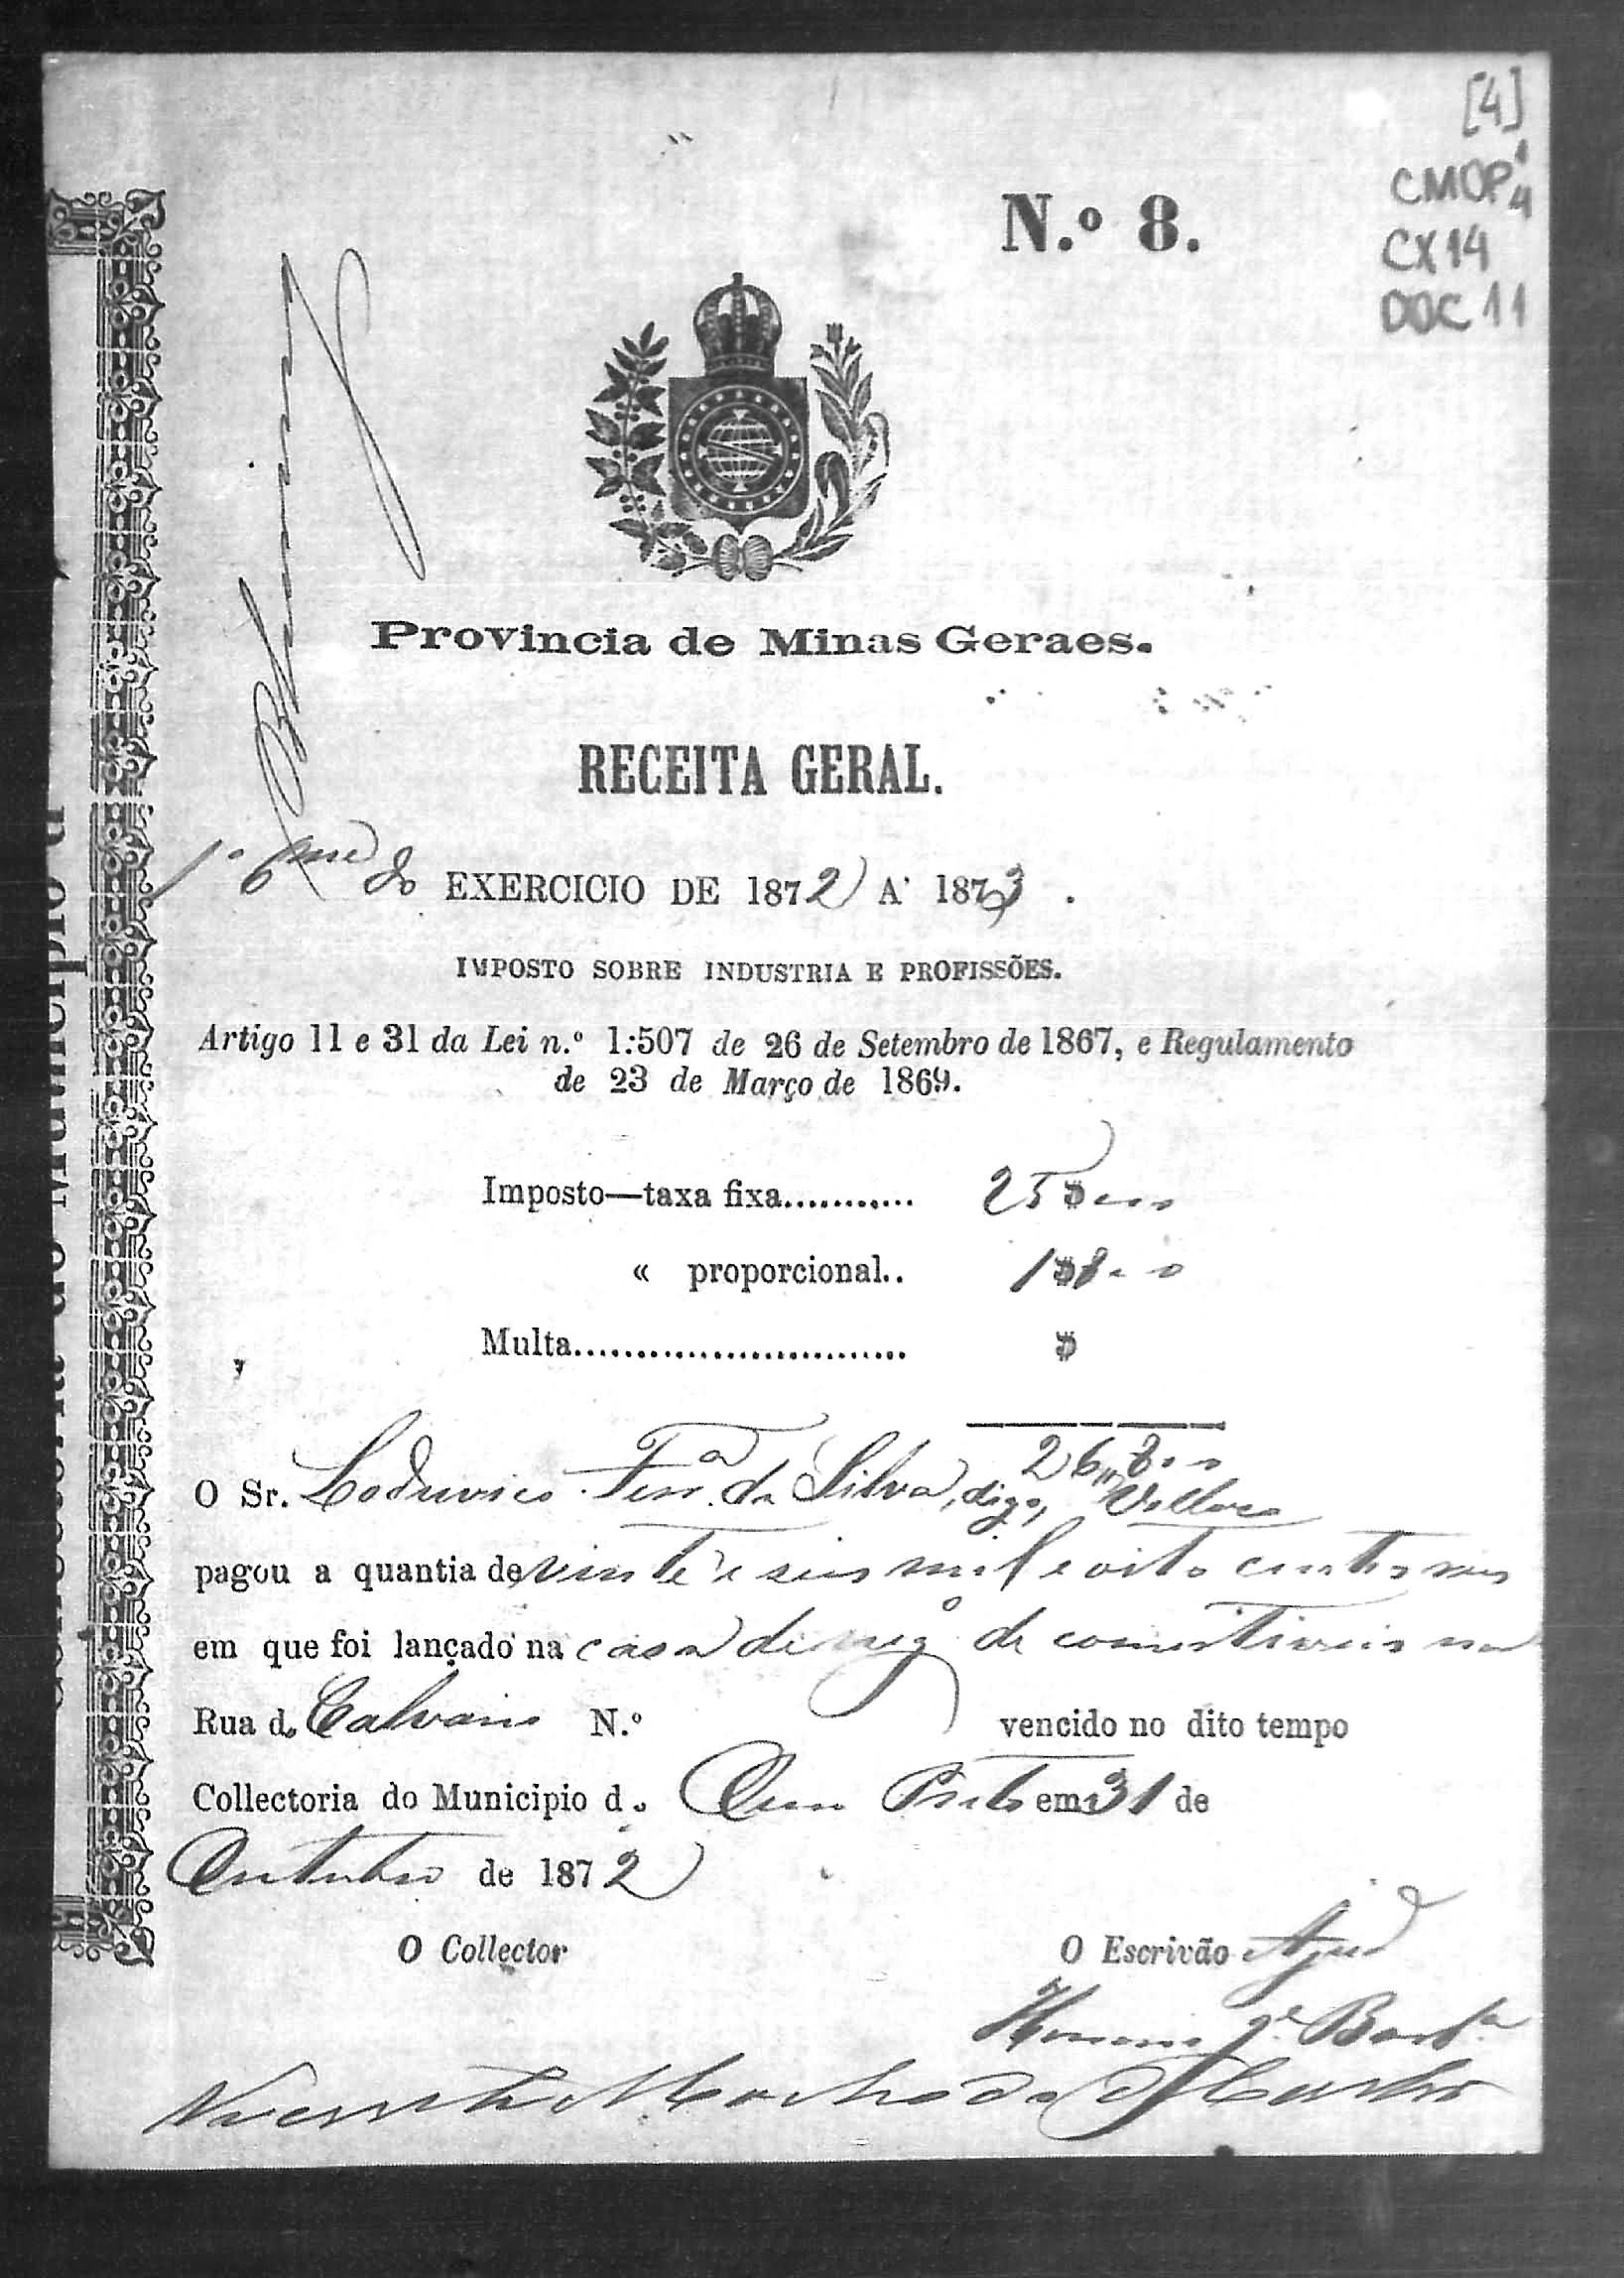 [4]
CMOP 1/4
CX 14
DOC 11
N.º 8.
Provincia de Minas Geraes.
RECEITA GERAL.
1º 6me do EXERCICIO DE 1872 A' 1873.
IMPOSTO SOBRE INDUSTRIA E PROFISSÕES.
Artigo 11 e 31 da Lei n.º 1:507 de 26 de Setembro de 1867, e Regulamento
de 23 de Março de 1869.
Imposto—taxa fixa........... 25$000
« proporcional.. 1$800
Multa............................ $
26"800
O Sr. Lodovico Ferrª da Silva, digo, Vellozo
pagou a quantia de vinte e seis mil e oito centos reis
em que foi lançado na casa de negº de comestiveis na
Rua do Calvario N.º vencido no dito tempo
Collectoria do Municipio do Ouro Preto em 31 de
Outubro de 1872
O Collector
O Escrivão Ajud
Honorio Je Barbª
Vicente Machado de Castro